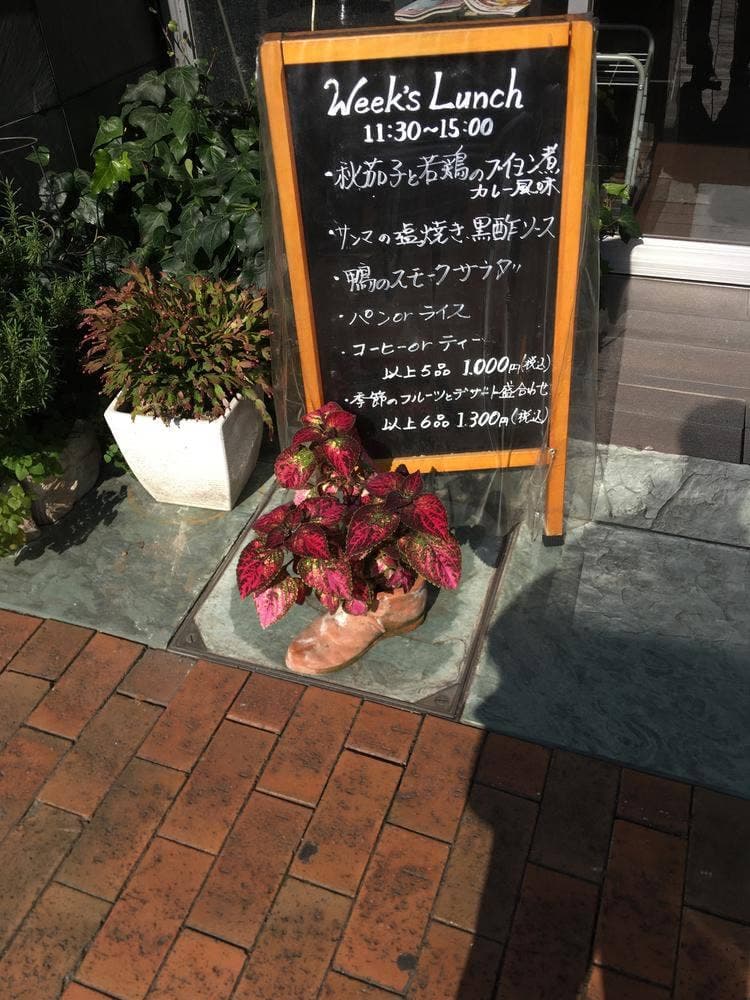 Week's Lunch
11:30~15:00
・秋茄子と若鶏のブイヨン煮
カレー風味
・サンマの塩焼き 黒酢ソース
・鴨のスモークサラダ
・パン or ライス
・コーヒー or ティー
以上5品 1.000円(税込)
・季節のフルーツとデザート盛合わせ
以上6品 1.300円(税込)